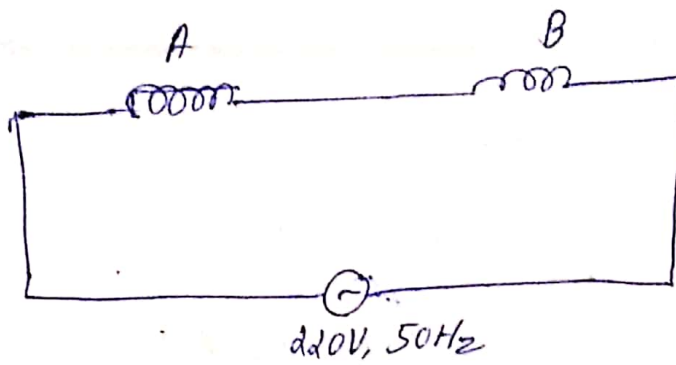 A
B
220V, 50Hz